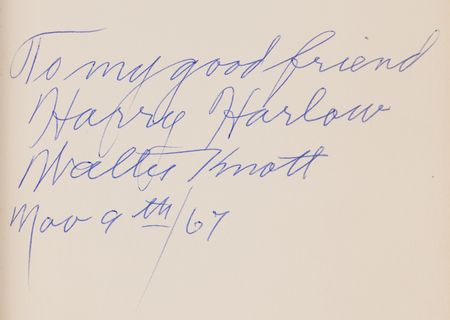 To my good friend
Harry Harlow
Walter Knott
Nov 9th/67